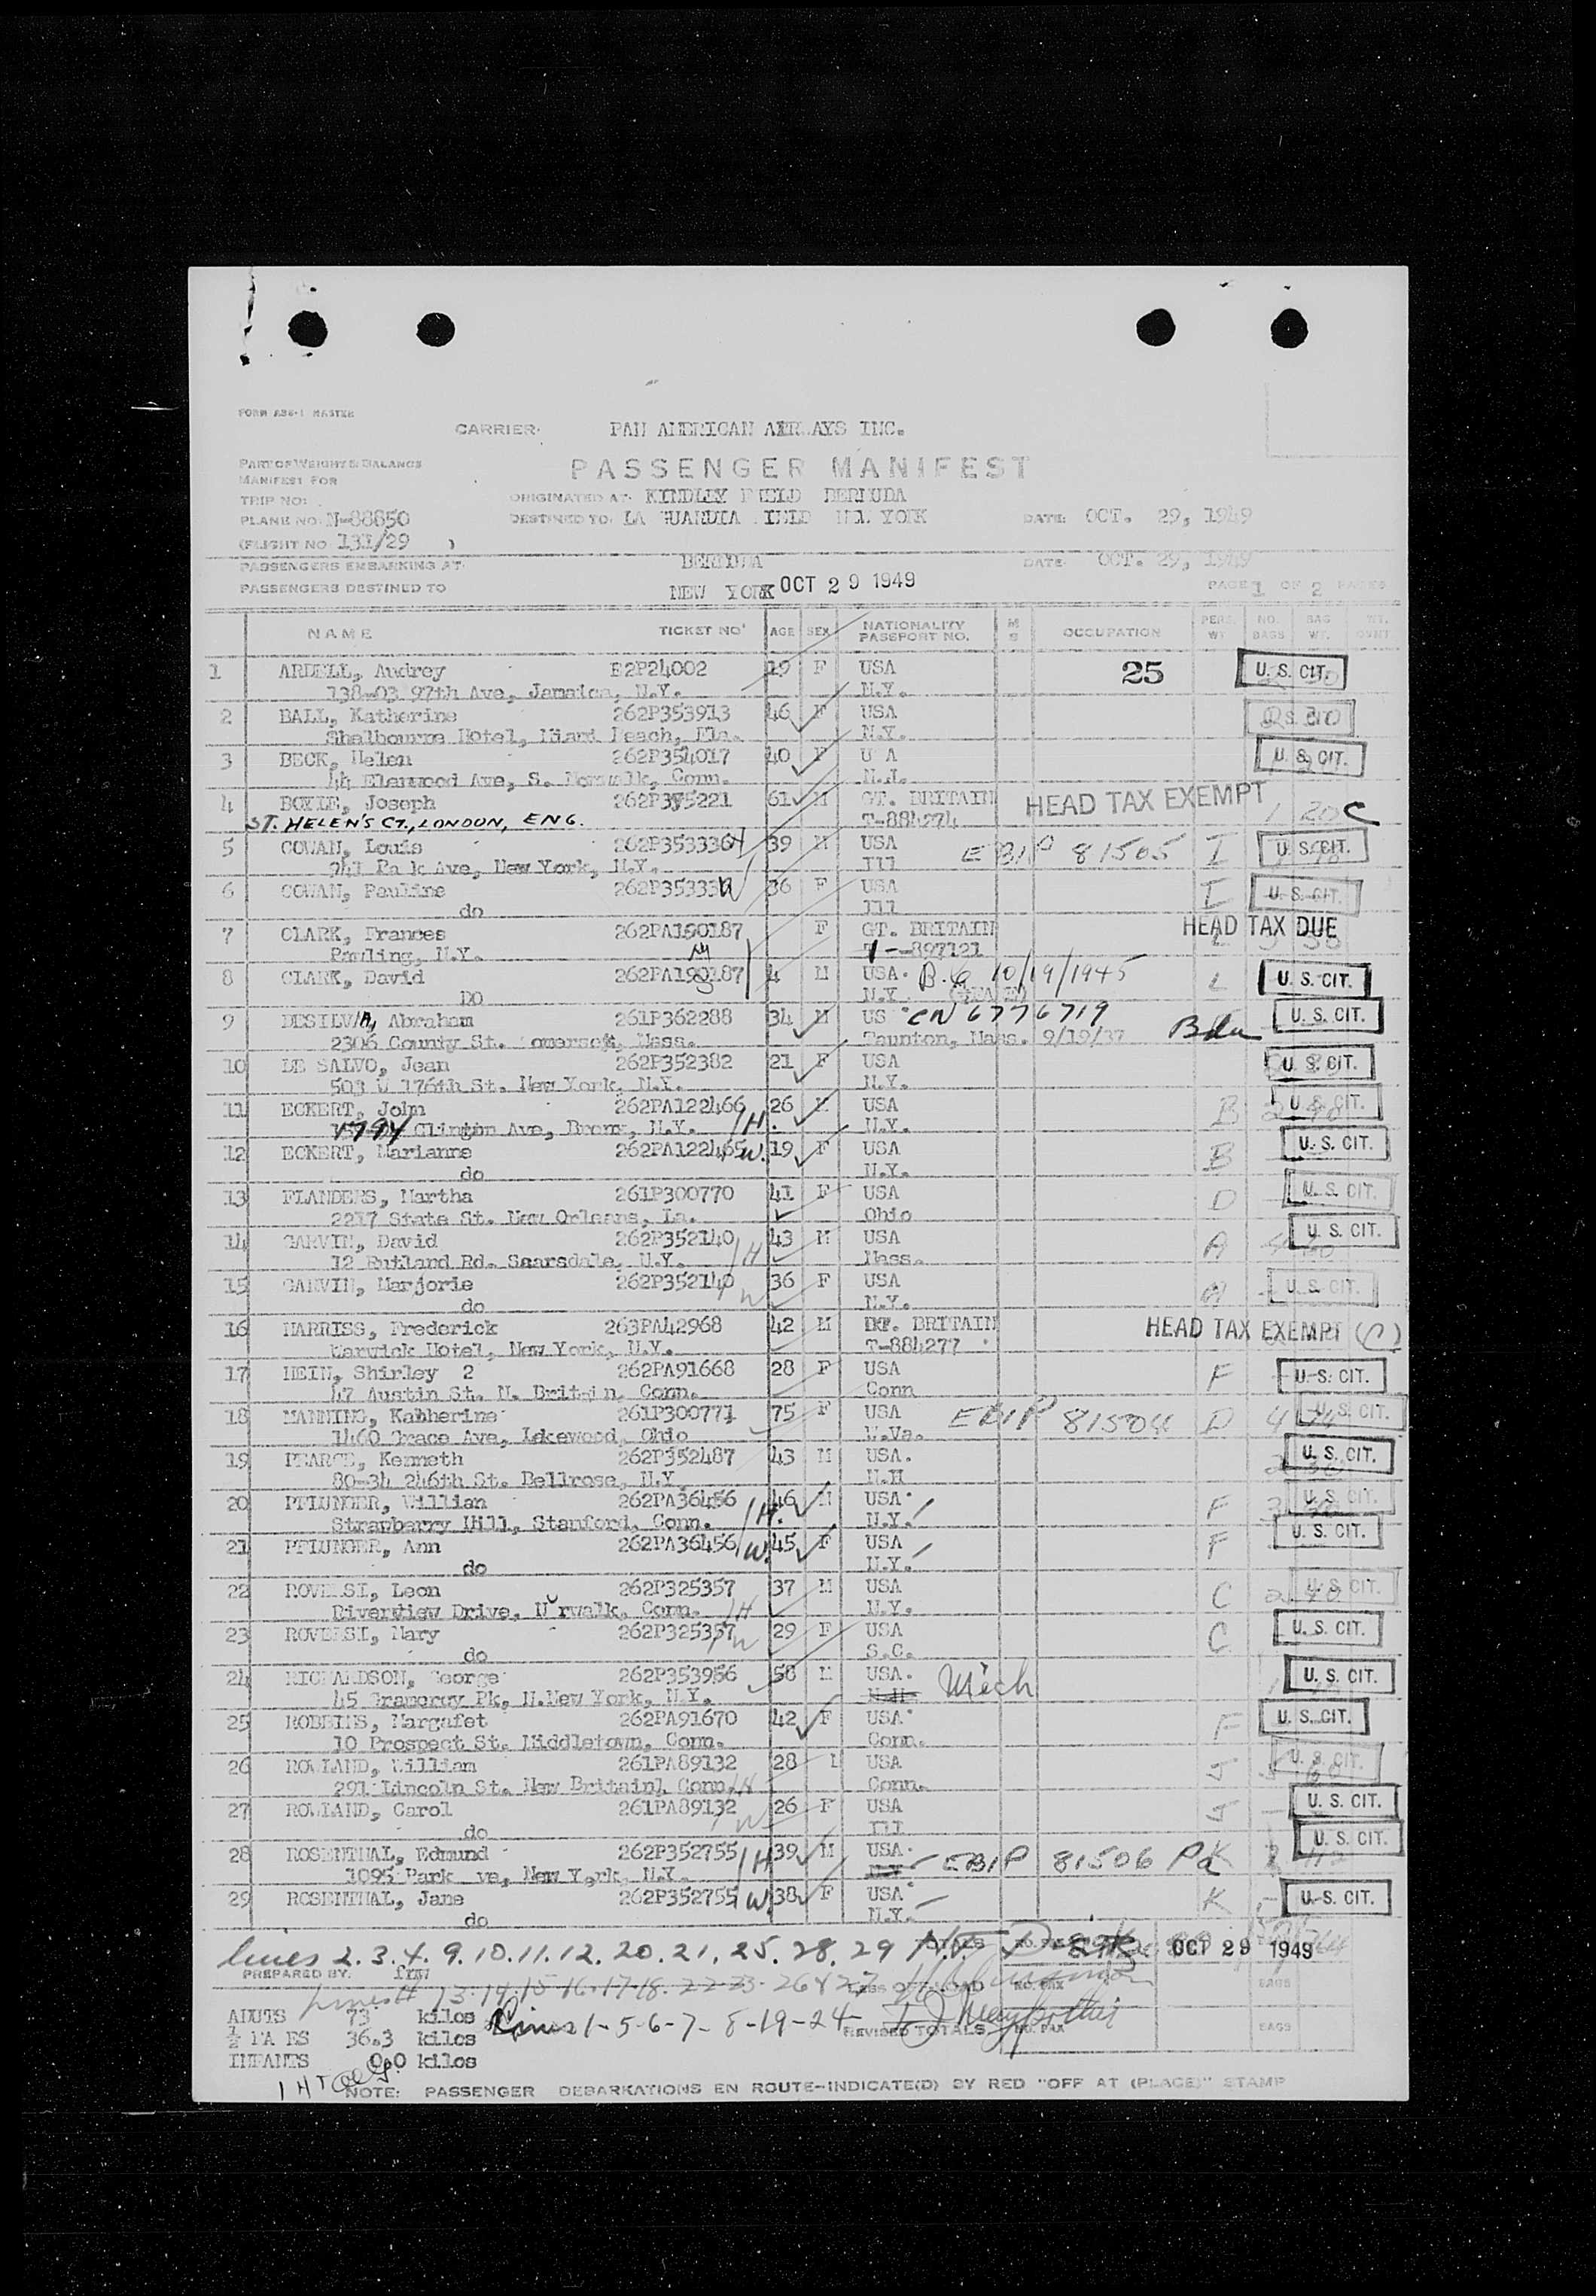 FORM A86-1 MASTER
CARRIER: PAN AMERICAN AIRWAYS INC.
PART OF WEIGHT & BALANCE
MANIFEST FOR
PASSENGER MANIFEST
TRIP NO:
ORIGINATED AT: KINDLEY FIELD BERMUDA
PLANE NO: N-88850
DESTINED TO: LA GUARDIA FIELD NEW YORK DATE: OCT. 29, 1949
(FLIGHT NO 131/29 )
PASSENGERS EMBARKING AT: BERMUDA DATE: OCT. 29, 1949
PASSENGERS DESTINED TO NEW YORK OCT 29 1949 PAGE 1 OF 2 PAGES
NAME TICKET NO AGE SEX NATIONALITY PASSPORT NO. M S OCCUPATION PERS. WT NO. BAGS BAG WT. WT. OVHT
1 ARDELL, Audrey 19 F USA 25 U. S. CIT.
138-03 97th Ave, Jamaica, N.Y. N.Y.
2 BALL, Katherine 262P353913 46 F USA U. S. CIT.
Shelbourne Hotel, Miami Beach, Fla. N.Y.
3 BECK, Helen 262P354017 40 F U A U. S. CIT.
S. Norwalk, Conn. N.J.
4 BOYLE, Joseph 61 M GT. BRITAIN HEAD TAX EXEMPT 1 20 C
ST. HELEN'S CT., LONDON, ENG. T-884274
5 COWAN, Louis 39 M USA EBIP 81505 I U. S. CIT.
Ave, New York, N.Y. Ill
6 COWAN, Pauline 36 F USA I U. S. CIT.
do Ill
7 CLARK, Frances 262PA190187 F GT. BRITAIN HEAD TAX DUE
Pawling, N.Y. -897121
8 CLARK, David 4 M USA. 10/19/1945 L U. S. CIT.
DO N.Y.
9 DESILVA, Abraham 261P362288 34 M US CN 6776719 U. S. CIT.
2306 County St. Somerset, Mass. Taunton, Mass. 9/19/37 Bda
10 DE SALVO, Jean 262P352382 21 F USA U. S. CIT.
503 W 176th St. New York, N.Y. N.Y.
11 ECKERT, John 262PA122466 26 M USA B U. S. CIT.
Clinton Ave, Bronx, N.Y. H. N.Y.
12 ECKERT, Marianne 262PA122465 W. 19 F USA B U. S. CIT.
do N.Y.
13 FLANDERS, Martha 261P300770 41 F USA D U. S. CIT.
2217 State St. New Orleans, La. Ohio
14 GARVIN, David 262P352140 43 M USA A U. S. CIT.
12 Rutland Rd. Scarsdale, N.Y. H Mass.
15 GARVIN, Marjorie 262P352140 W 36 F USA A U. S. CIT.
do N.Y.
16 HARRISS, Frederick 263PA42968 42 M BRITAIN HEAD TAX EXEMPT (C)
Warwick Hotel, New York, N.Y. T-884277
17 HEIN, Shirley 2 262PA91668 28 F USA F U. S. CIT.
47 Austin St. N. Britain, Conn. Conn
18 MANNING, Katherine 261P300771 75 F USA EBIP 81504 D U. S. CIT.
1460 Grace Ave, Lakewood, Ohio W.Va.
19 PEARCE, Kenneth 262P352487 43 M USA. U. S. CIT.
80-34 246th St. Bellrose, N.Y. N.H
20 PFLUNGER, Willian 262PA36456 46 M USA F U. S. CIT.
Strawberry Hill, Stanford, Conn. H. N.Y.
21 PFLUNGER, Ann 262PA36456 W. 45 F USA F U. S. CIT.
do N.Y.
22 Leon 262P325357 37 M USA C U. S. CIT.
Riverview Drive, Norwalk, Conn. H N.Y.
23 Mary 262P325357 W 29 F USA C U. S. CIT.
do S.C.
24 RICHARDSON, George 262P353956 58 M USA. Mich U. S. CIT.
45 Gramercy Pk, N. New York, N.Y.
25 ROBBINS, Margafet 262PA91670 42 F USA F U. S. CIT.
10 Prospect St. Middletown, Conn. Conn.
26 ROWLAND, William 261PA89132 28 USA J U. S. CIT.
291 Lincoln St. New Britain, Conn. H Conn.
27 ROWLAND, Carol 261PA89132 W 26 F USA J U. S. CIT.
do Ill
28 ROSENTHAL, Edmund 262P352755 H 39 M USA. EBIP 81506 Pa K U. S. CIT.
1095 Park ve, New York, N.Y.
29 ROSENTHAL, Jane 262P352755 W. 38 F USA K U. S. CIT.
do N.Y.
lines 2. 3. 4. 9. 10. 11. 12. 20. 21. 25. 28. 29 TOTALS OCT 29 1949
PREPARED BY. frw
13-14-15-16-17-18-22-23-26 & 27 NO. PAX BAGS
ADUTS 73 kilos Lines 1-5-6-7-8-19-24 REVISED TOTALS NO. PAX BAGS
36.3 kilos
INFANTS 0.0 kilos
1 HT
NOTE: PASSENGER DEBARKATIONS EN ROUTE-INDICATE(D) BY RED "OFF AT (PLACE)" STAMP